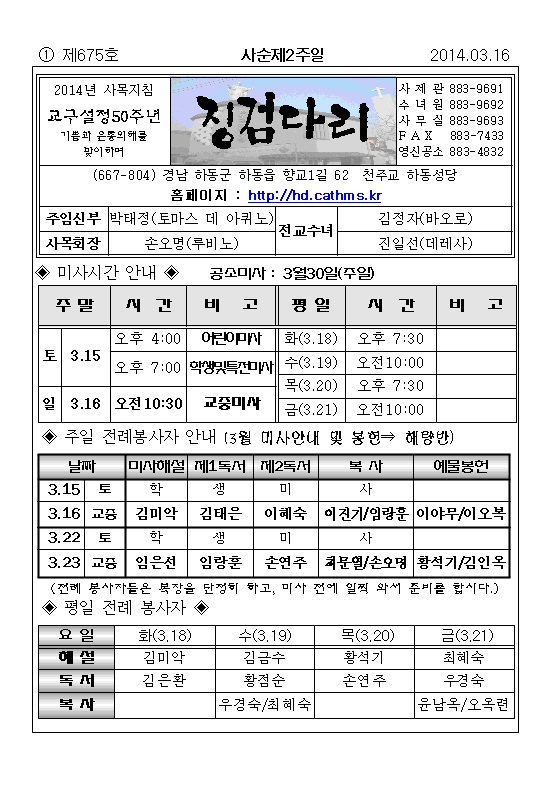 ① 제675호 사순제2주일 2014.03.16
2014년 사목지침
교구설정50주년
기쁨과 은총의해를
맞이하며
징검다리
사 제 관 883-9691
수 녀 원 883-9692
사 무 실 883-9693
F A X 883-7433
영신공소 883-4832
(667-804) 경남 하동군 하동읍 향교1길 62 천주교 하동성당
홈페이지 : http://hd.cathms.kr
주임신부 박태정(토마스 데 아퀴노) 전교수녀 김정자(바오로)
사목회장 손오명(루비노) 진일선(데레사)
◈ 미사시간 안내 ◈ 공소미사 : 3월30일(주일)
주 말 시 간 비 고 평 일 시 간 비 고
토 3.15 오후 4:00 어린이미사 화(3.18) 오후 7:30
오후 7:00 학생및특전미사 수(3.19) 오전10:00
목(3.20) 오후 7:30
일 3.16 오전10:30 교중미사 금(3.21) 오전10:00
◈ 주일 전례봉사자 안내 (3월 미사안내 및 봉헌⇒ 해량반)
날짜 미사해설 제1독서 제2독서 복 사 예물봉헌
3.15 토 학 생 미 사
3.16 교중 김미악 김태은 이혜숙 이진기/임랑훈 이야무/이오복
3.22 토 학 생 미 사
3.23 교중 임은선 임랑훈 손연주 최문열/손오명 황석기/김인옥
(전례 봉사자들은 복장을 단정히 하고, 미사 전에 일찍 와서 준비를 합시다.)
◈ 평일 전례 봉사자 ◈
요 일 화(3.18) 수(3.19) 목(3.20) 금(3.21)
해 설 김미악 김금수 황석기 최혜숙
독 서 김은환 황점순 손연주 우경숙
복 사 우경숙/최혜숙 윤남옥/오옥련